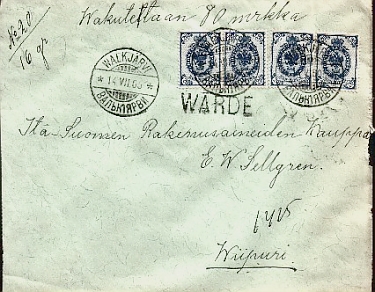 No 20
16 gr
Wakutettaan 80 mrkka
WALKJÄRVI
14.VII.03
ВАЛЬКЪЯРВИ
WARDE
Itä-Suomen Rakennusaineiden Kauppa
E. W. Sellgren.
Wiipuri.